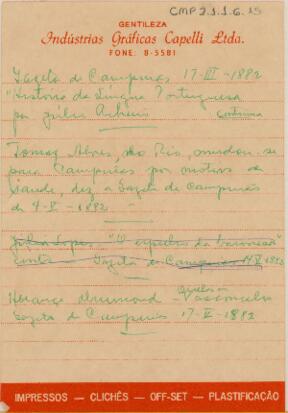 CMP 2.1.1.6.15
GENTILEZA
Indústrias Gráficas Capelli Ltda.
FONE: 8-5581
Gazeta de Campinas 17-III-1882
"História da Língua Portuguesa
por Júlio Ribeiro continua
Tomaz Alves, do Rio, mudou-se
para Campinas por motivo de
saude, diz a Gazeta de Campinas
de 4-V-1882
Julio Lopes - "O espelho da baronesa"
Conto - Gazeta de Campinas 14-V-1882
Horange Drumond - Vasconcelos
Gazeta de Campinas 17-V-1882
IMPRESSOS — CLICHÊS — OFF-SET — PLASTIFICAÇÃO